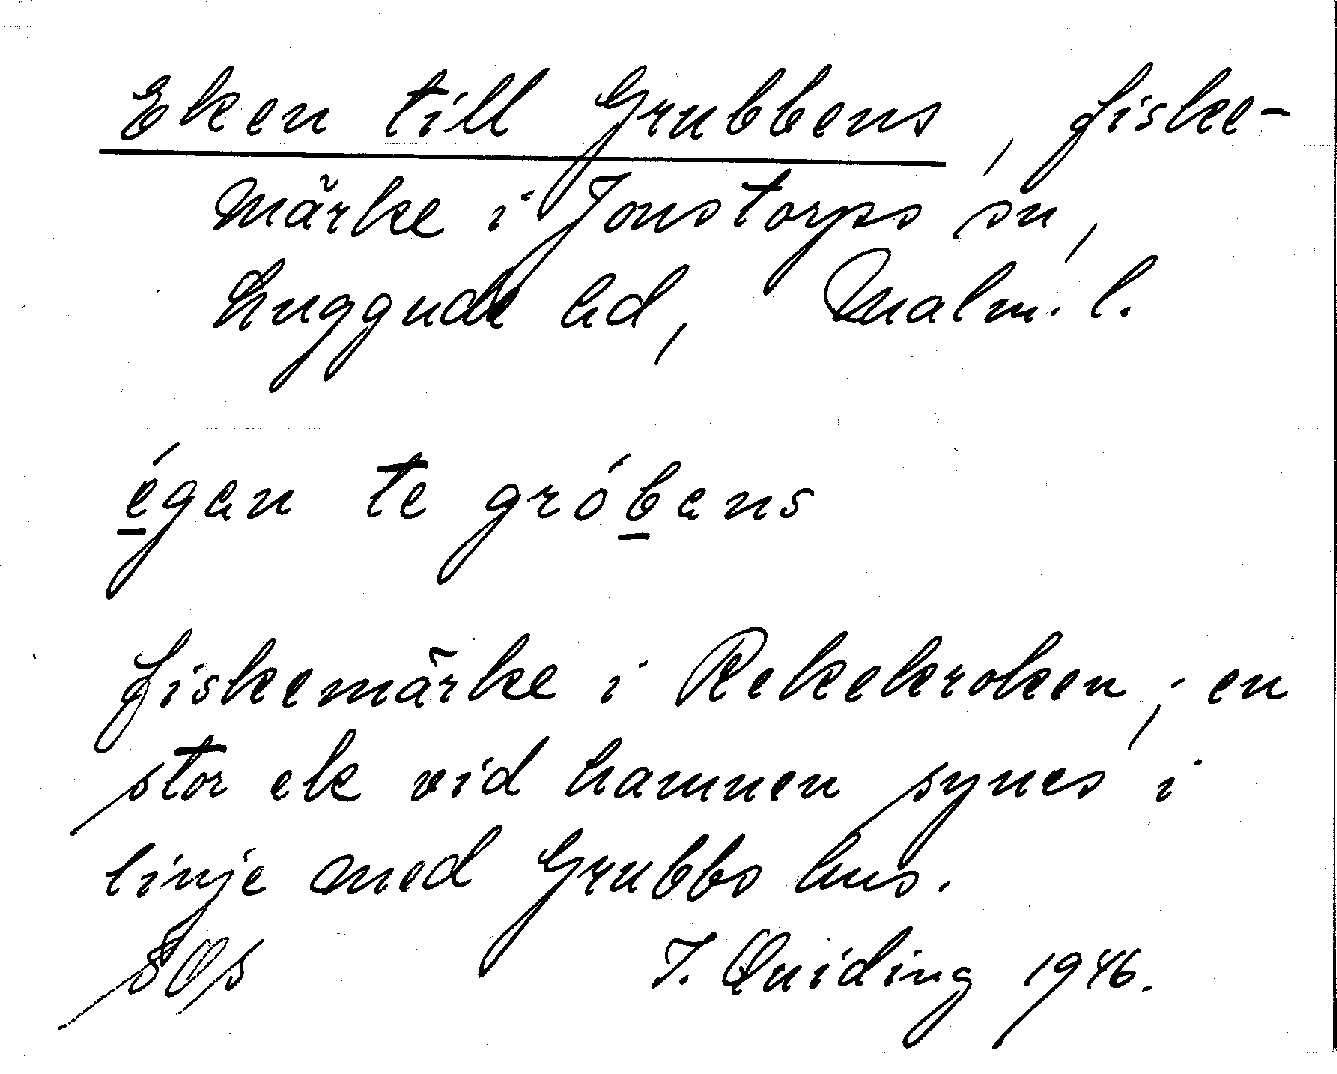 Eken till Grubbens, fiske-
märke i Jonstorps sn,
Luggude hd, Malm. l.
égan te gróbens
fiskemärke i Rekekroken; en
stor ek vid hamnen synes i
linje med Grubbs hus.
I. Quiding 1946.